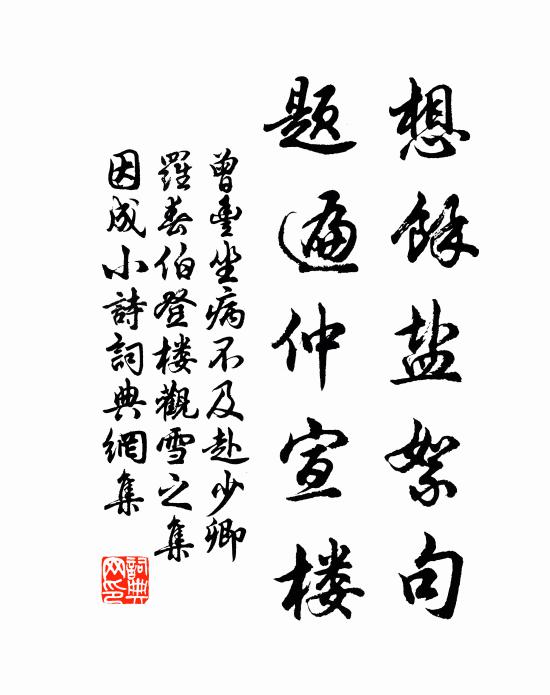 想餘盐絮句
题遍仲宣楼
曾豊坐病不及赴少卿
羅春伯登楼觀雪之集
因成小詩詞典網集
詞典
网印